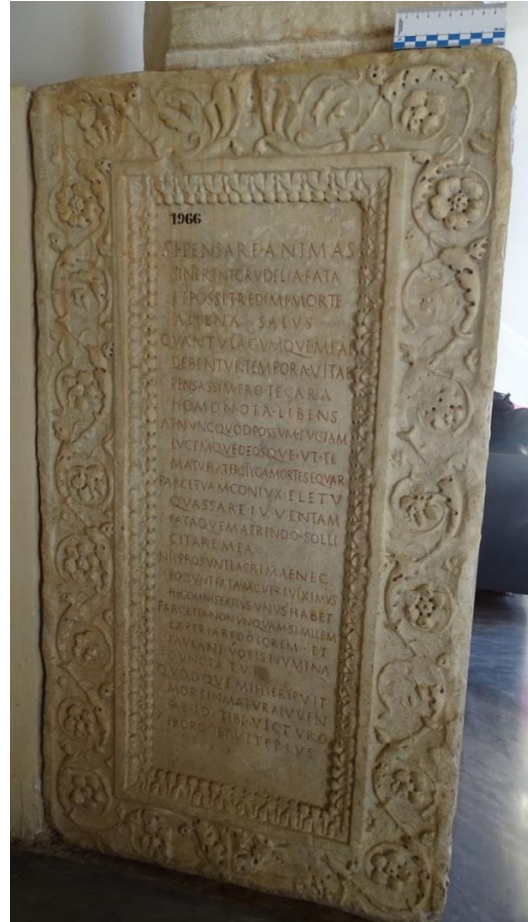 1966
SI·PENSARE·ANIMAS
SINERENT·CRVDELIA·FATA
ET·POSSET·REDIMI·MORTE
ALIENA SALVS
QVANTVLACVMQVE·MEAE
DEBENTVR·TEMPORA·VITAE
PENSASSEM·PRO TE·CARA
HOMONOEA·LIBENS
AT·NVNC·QVOD·POSSVM·FVGIAM
LVCEMQVE·DEOSQVE·VT·TE
MATVRA·PER·STYGA·MORTE·SEQVAR
PARCE·TVAM·CONIVX·FLETV
QVASSARE·IVVENTAM
FATAQVE·MAERENDO·SOLLI
CITARE·MEA
NIL·PROSVNT·LACRIMAE·NEC
POSSVNT·FATA·MOVERI·VIXIMVS
HIC·OMNIS·EXITVS·VNVS·HABET
PARCE·ITA·NON·VNQVAM·SIMILEM
EXPERIARE·DOLOREM·ET
FAVEANT·VOTIS·NVMINA
CVNCTA·TVIS
QVODQVE·MIHI·ERIPVIT
MORS·INMATVRA·IVVEN
TAE·ID·TIBI·VICTVRO
PROROGET·VLTERIVS